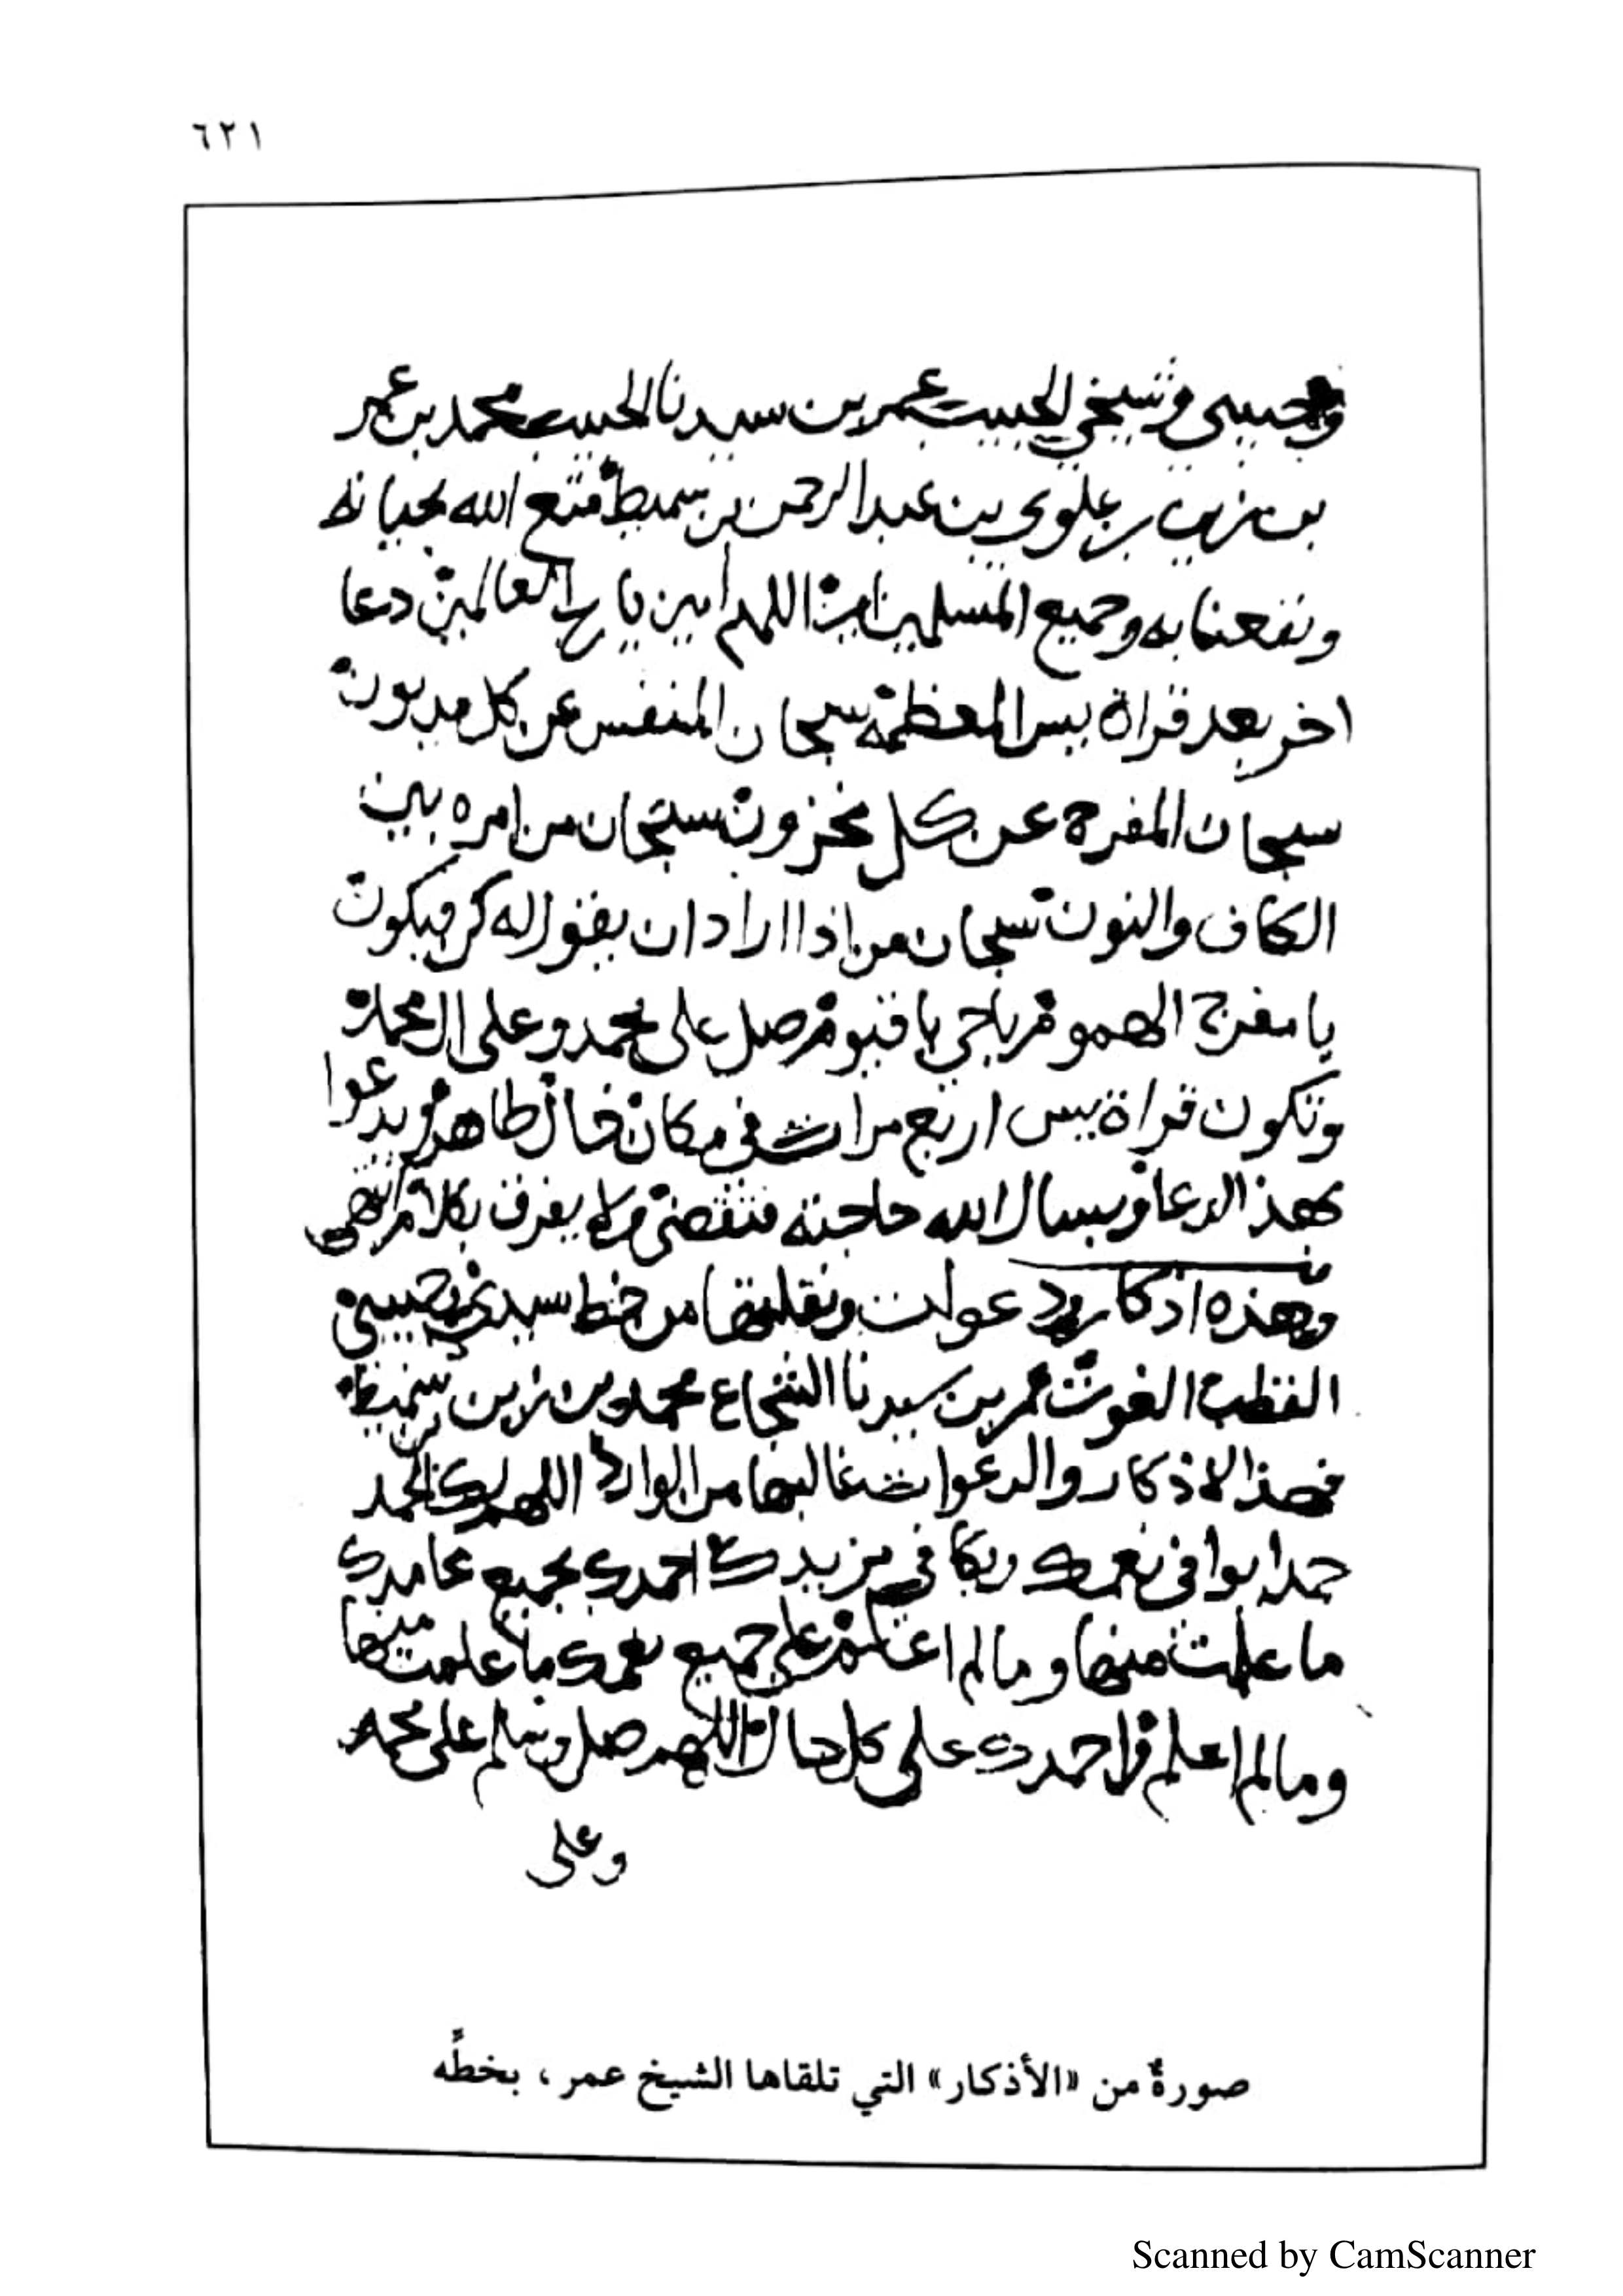 ٦٢١
وحبيبي وشيخي الحبيب عمر بن سيدنا الحبيب محمد بن عمر
بن زين بن علوي بن عبد الرحمن بن سميط متع الله بحياته
ونفعنا به وجميع المسلمين امين اللهم امين يا رب العالمين دعا
اخر بعد قراة يس المعظمة سبحان المنفس عن كل مديون
سبحان المفرج عن كل محزون سبحان من امره بين
الكاف والنون سبحان من اذا اراد ان يقول له كن فيكون
يا مفرج الهموم يا حي يا قيوم صل على محمد وعلى ال محمد
وتكون قراة يس اربع مرات في مكان خال طاهر ويدعوا
بهذا الدعا ويسال الله حاجته فتقضى ولا يفرق بكلام انتهى
وهذه اذكار ودعوات ونقلتها من خط سيدي وحبيبي
القطب الغوث عمر بن سيدنا الشجاع محمد بن زين بن سميط
فهذا الاذكار والدعوات غالبها من الوارد اللهم لك الحمد
حمدا يوافي نعمك ويكافي مزيدك احمدك بجميع محامدك
ما علمت منها وما لم اعلم على جميع نعمك ما علمت منها
وما لم اعلم واحمدك على كل حال اللهم صل وسلم على محمد
وعلى
صورةٌ من «الأذكار» التي تلقاها الشيخ عمر، بخطِّه
Scanned by CamScanner